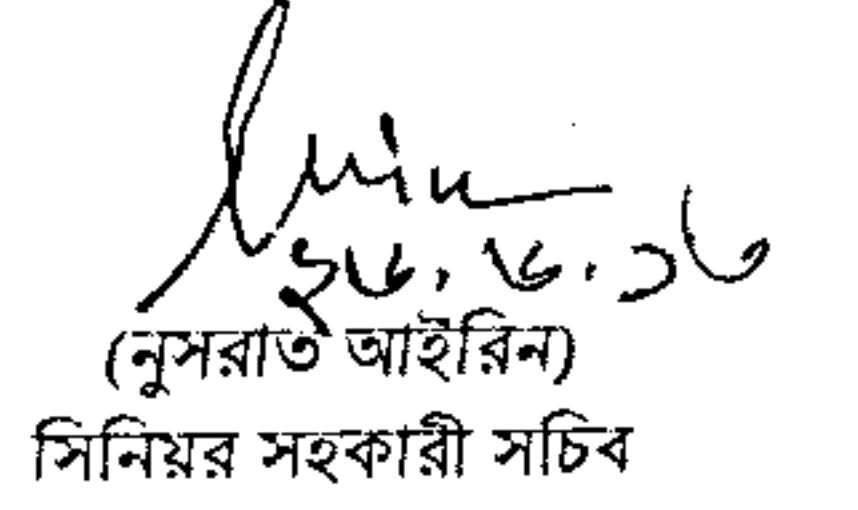 ২৬.৬.১৬
(নুসরাত আইরিন)
সিনিয়র সহকারী সচিব